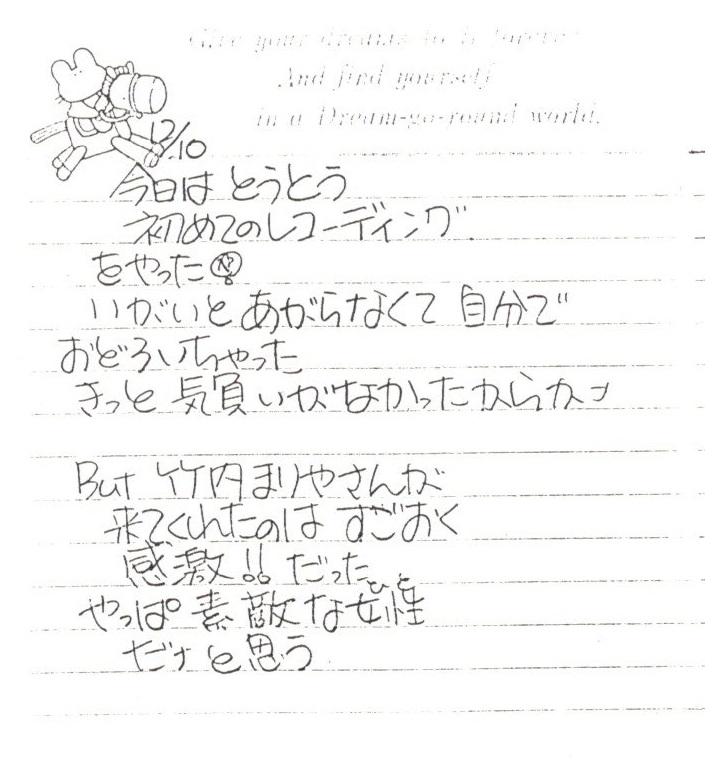 Give your dreams to it forever
And find yourself
in a Dream-go-round world.
12/10
今日は とうとう
初めてのレコーディング
をやった
いがいと あがらなくて 自分で
おどろいちゃった
きっと 気負いがなかったからかナ
But 竹内まりやさんが
来てくれたのは すごおく
感激!! だった
やっぱ 素敵な女性
ひと
だナ と思う